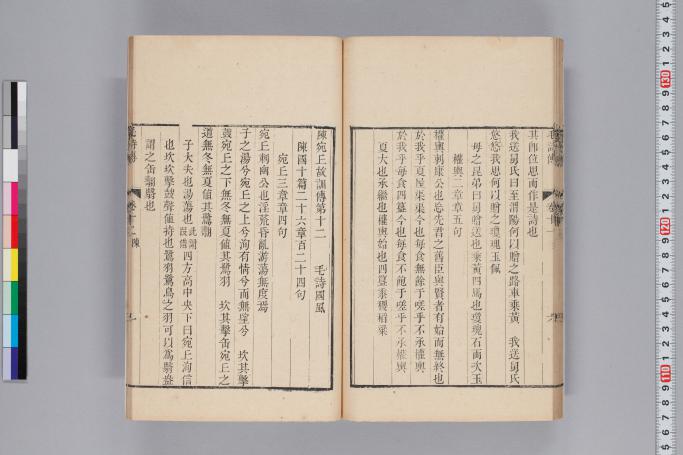 其卽位思而作是詩也
我送舅氏曰至渭陽何以贈之路車乘黃　我送舅氏
悠悠我思何以贈之瓊瑰玉佩
母之昆弟曰舅贈送也乘黃四馬也瓊瑰石而次玉
權輿二章章五句
權輿刺康公也忘先君之舊臣與賢者有始而無終也
於我乎夏屋渠渠今也每食無餘于嗟乎不承權輿
於我乎每食四簋今也每食不飽于嗟乎不承權輿
夏大也承繼也權輿始也四簋黍稷稻粱
陳宛丘故訓傳第十二　毛詩國風
陳國十篇二十六章百二十四句
宛丘三章章四句
宛丘刺幽公也淫荒昏亂游蕩無度焉
子之湯兮宛丘之上兮洵有情兮而無望兮　坎其擊
鼓宛丘之下無冬無夏値其鷺羽　坎其擊缶宛丘之
道無冬無夏値其鷺翿
子大夫也湯蕩也 四方高中央下曰宛丘洵信
也坎坎擊鼓聲値持也鷺羽鷺鳥之羽可以爲翳盎
謂之缶翿翳也